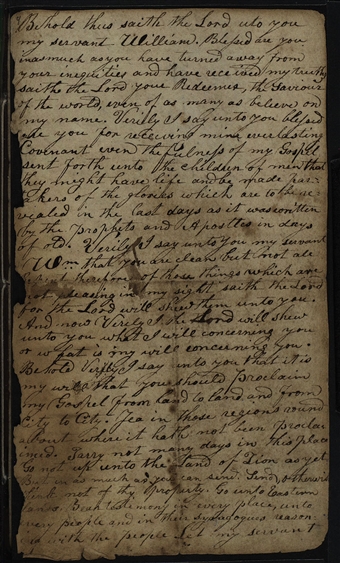 Behold thus saith the Lord uto you
my servant William. Blessed are you
inasmuch as you have turned away from
your inequities and have received my truths
saith the Lord your Redeemer, the Saviour
of the world, even of as many as believe on
my name. Verily I say unto you blessed
are you for receiving mine everlasting
Covenant even the fulness of my Gospel
sent forth unto the children of men that
they might have life and be made par-
takers of the glories which are to be re-
vealed in the last days as it was written
by the Prophets and Apostles in days
of old. Verily I say unto you my servant
Wm that you are clean but not all
of those things which are
not pleasing in my sight saith the Lord
for the Lord will shew them unto you.
And now Verily I the Lord will shew
unto you what I will concerning you
or what is my will concerning you.
Behold Verily I say unto you that it is
my will that you should Proclaim
my Gospel from land to land and from
City to City. Yea in those regions round
about where it hath not been proclai
med. Tarry not many days in this place
Go not up unto the Land of Zion as yet
But in as much as you can send. Send, otherwise
think not of thy property. Go unto Eastern
lands. Bear testimony in every place, unto
every people and in their synagogues reason-
ing with the people Let my servant